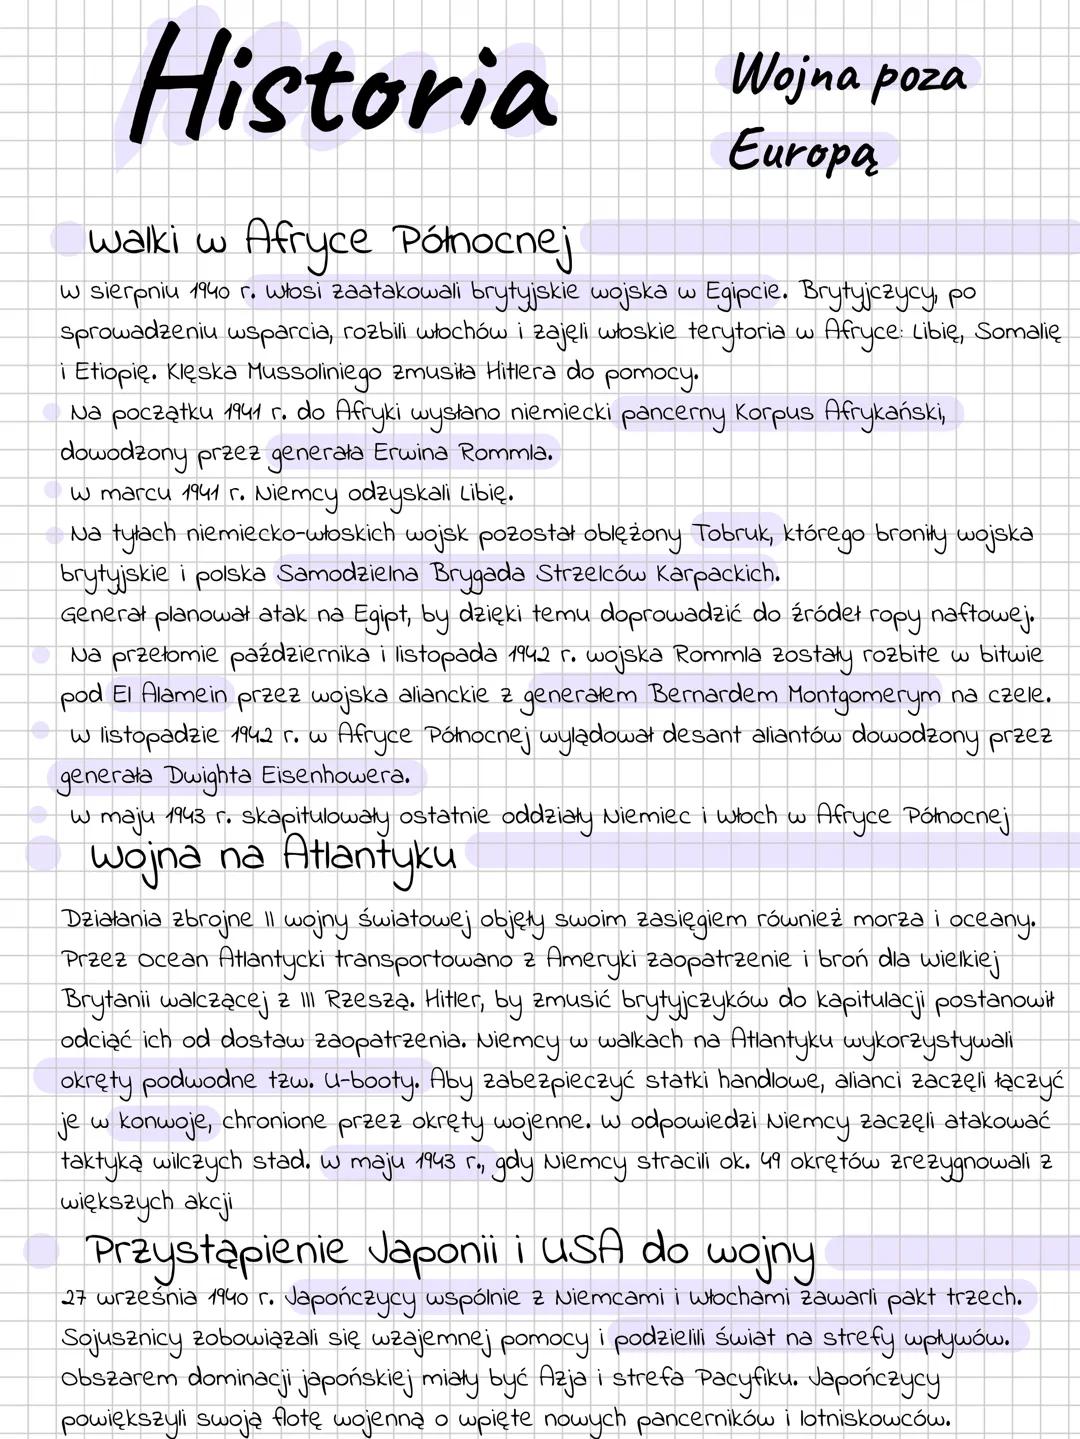 Historia
Wojna poza
Europą
Walki w Afryce Północnej
W sierpniu 1940 r. Włosi zaatakowali brytyjskie wojska w Egipcie. Brytyjczycy, po
sprowadzeniu wsparcia, rozbili włochów i zajęli włoskie terytoria w Afryce: Libię, Somalię
i Etiopię. Klęska Mussoliniego zmusiła Hitlera do pomocy.
Na początku 1941 r. do Afryki wysłano niemiecki pancerny Korpus Afrykański,
dowodzony przez generała Erwina Rommla.
W marcu 1941 r. Niemcy odzyskali Libię.
Na tyłach niemiecko-włoskich wojsk pozostał oblężony Tobruk, którego broniły wojska
brytyjskie i polska Samodzielna Brygada Strzelców Karpackich.
Generał planował atak na Egipt, by dzięki temu doprowadzić do źródeł ropy naftowej.
Na przełomie października i listopada 1942 r. wojska Rommla zostały rozbite w bitwie
pod El Alamein przez wojska alianckie z generałem Bernardem Montgomerym na czele.
W listopadzie 1942 r. w Afryce Północnej wylądował desant aliantów dowodzony przez
generała Dwighta Eisenhowera.
W maju 1943 r. skapitulowały ostatnie oddziały Niemiec i Włoch w Afryce Północnej
Wojna na Atlantyku
Działania zbrojne II wojny światowej objęły swoim zasięgiem również morza i oceany.
Przez Ocean Atlantycki transportowano z Ameryki zaopatrzenie i broń dla Wielkiej
Brytanii walczącej z III Rzeszą. Hitler, by zmusić brytyjczyków do kapitulacji postanowił
odciąć ich od dostaw zaopatrzenia. Niemcy w walkach na Atlantyku wykorzystywali
okręty podwodne tzw. U-booty. Aby zabezpieczyć statki handlowe, alianci zaczęli łączyć
je w konwoje, chronione przez okręty wojenne. W odpowiedzi Niemcy zaczęli atakować
taktyką wilczych stad. W maju 1943 r., gdy Niemcy stracili ok. 49 okrętów zrezygnowali z
większych akcji
Przystąpienie Japonii i USA do wojny
27 września 1940 r. Japończycy wspólnie z Niemcami i Włochami zawarli pakt trzech.
Sojusznicy zobowiązali się wzajemnej pomocy i podzielili świat na strefy wpływów.
Obszarem dominacji japońskiej miały być Azja i strefa Pacyfiku. Japończycy
powiększyli swoją flotę wojenną o wpięte nowych pancerników i lotniskowców.